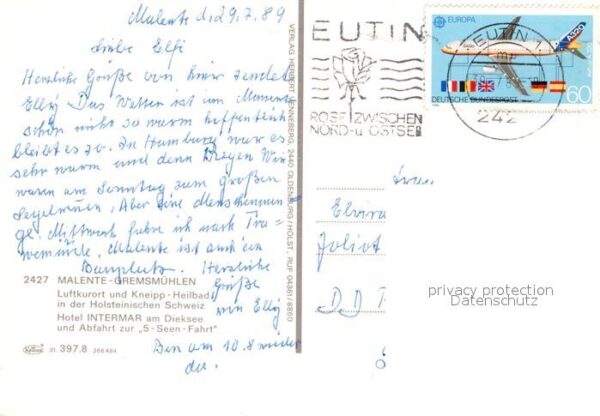 Malente d. 29.7.89
Liebe Elfi
Herzliche Grüße von hier sendet
Elly Das Wetter ist im Moment
schön nicht so warm hoffentlich
bleibt es so. In Hamburg war es
sehr warm und dann Regen Wir
waren am Sonntag zum großen
Segelrennen, Aber eine Menschenmen-
ge. Mittwoch fahre ich nach Tra-
vemünde. Malente ist auch ein
Herzliche
Grüße
von Elly
Bin am 10.8 wieder
da.
2427 MALENTE-GREMSMÜHLEN
Luftkurort und Kneipp-Heilbad
in der Holsteinischen Schweiz
Hotel INTERMAR am Dieksee
und Abfahrt zur „5-Seen-Fahrt"
21 397.8 266484
VERLAG HERBERT DENNEBERG, 2440 OLDENBURG/HOLST. · RUF 04361/8860
EUTIN
ROSE ZWISCHEN
NORD- u OSTSEE
EUTIN 1
242
EUROPA
A320
DEUTSCHE BUNDESPOST
60
Frau
Elvira
Joliot
DDR
privacy protection
Datenschutz